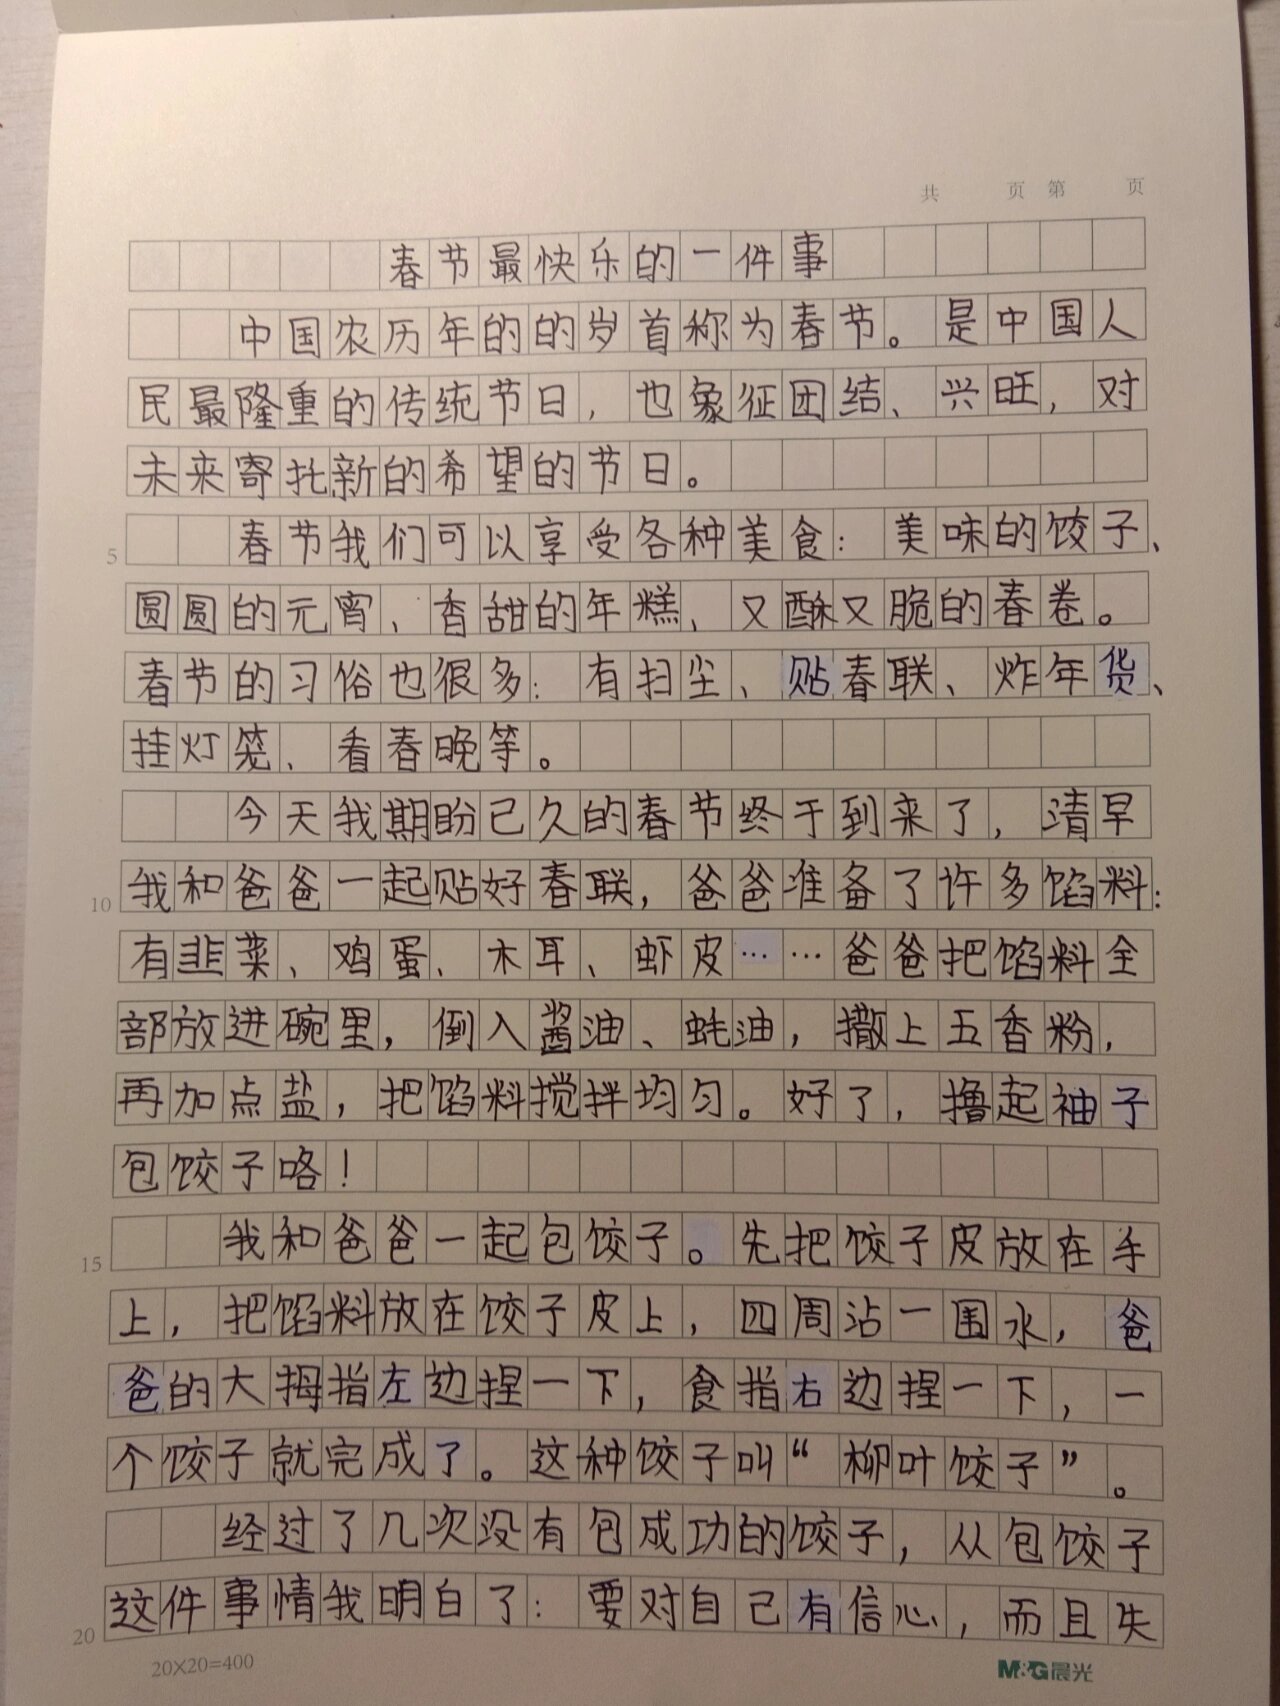 共 页 第 页
春节最快乐的一件事
中国农历年的的岁首称为春节。是中国人
民最隆重的传统节日，也象征团结、兴旺，对
未来寄托新的希望的节日。
5 春节我们可以享受各种美食：美味的饺子、
圆圆的元宵、香甜的年糕、又酥又脆的春卷。
春节的习俗也很多：有扫尘、贴春联、炸年货、
挂灯笼、看春晚等。
今天我期盼已久的春节终于到来了，清早
10 我和爸爸一起贴好春联，爸爸准备了许多馅料：
有韭菜、鸡蛋、木耳、虾皮……爸爸把馅料全
部放进碗里，倒入酱油、蚝油，撒上五香粉，
再加点盐，把馅料搅拌均匀。好了，撸起袖子
包饺子咯！
15 我和爸爸一起包饺子。先把饺子皮放在手
上，把馅料放在饺子皮上，四周沾一围水，爸
爸的大拇指左边捏一下，食指右边捏一下，一
个饺子就完成了。这种饺子叫“柳叶饺子”。
经过了几次没有包成功的饺子，从包饺子
20 这件事情我明白了：要对自己有信心，而且失
20×20=400 M&G晨光